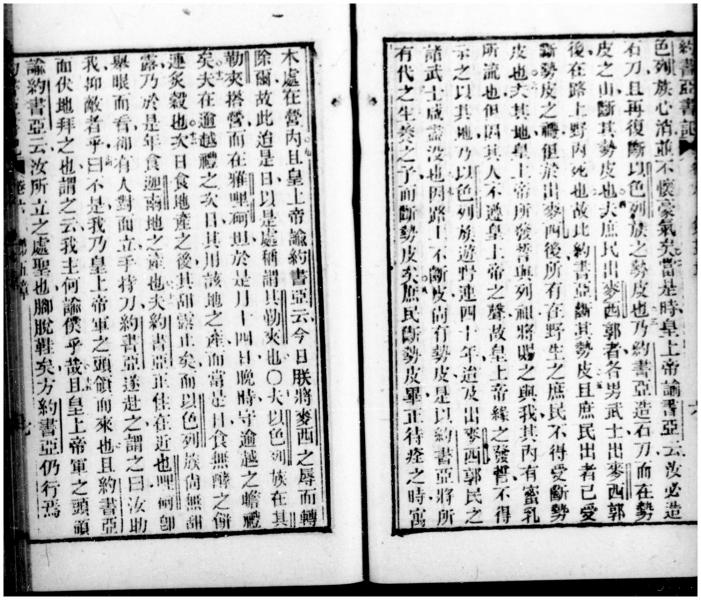 色列族心消並不懷豪氣矣當是時皇上帝諭書亞云汝必造
石刀且再復斷以色列族之勢皮也乃約書亞造石刀而在勢
皮之山斷其勢皮也夫庶民出麥西郭者各男武士出麥西郭
後在路上野內死也故此約書亞斷其勢皮且庶民出者已受
斷勢皮之禮但於出麥西後所有在野生之庶民不得受斷勢
皮也夫其地皇上帝所發誓與列祖將賜之與我其內有蜜乳
所流也但因其人不遵皇上帝之聲故皇上帝緣之發誓不得
示之以其地乃以色列族遊野連四十年迨及出麥西郭民之
諸武士咸盡沒也因路上不斷皮尚有勢皮是以約書亞將所
有代之生養之子而斷勢皮矣庶民斷勢皮畢正待痊之時寓
木處在營內且皇上帝諭約書亞云今日朕將麥西之辱而轉
除爾故此迨是日以是處稱謂其勒夾也〇夫以色列族在其
勒夾搭營而在雅哩訶坦於是月十四日晚時守逾越之瞻禮
矣夫在逾越禮之次日其用該地之產而當是日食無酵之餅
連炙穀也次日食地產之後其甜露止矣而以色列族尚無甜
露乃於是年食迦南地之產也夫約書亞正住在近也哩訶卽
舉眼而看卻有人對面立手持刀約書亞遂赴之謂之曰汝助
我抑敵者乎曰不是我乃皇上帝軍之頭領而來也且約書亞
而伏地拜之也謂之云我主何諭僕乎哉且皇上帝軍之頭領
諭約書亞云汝所立之處聖也腳脫鞋矣方約書亞仍行焉